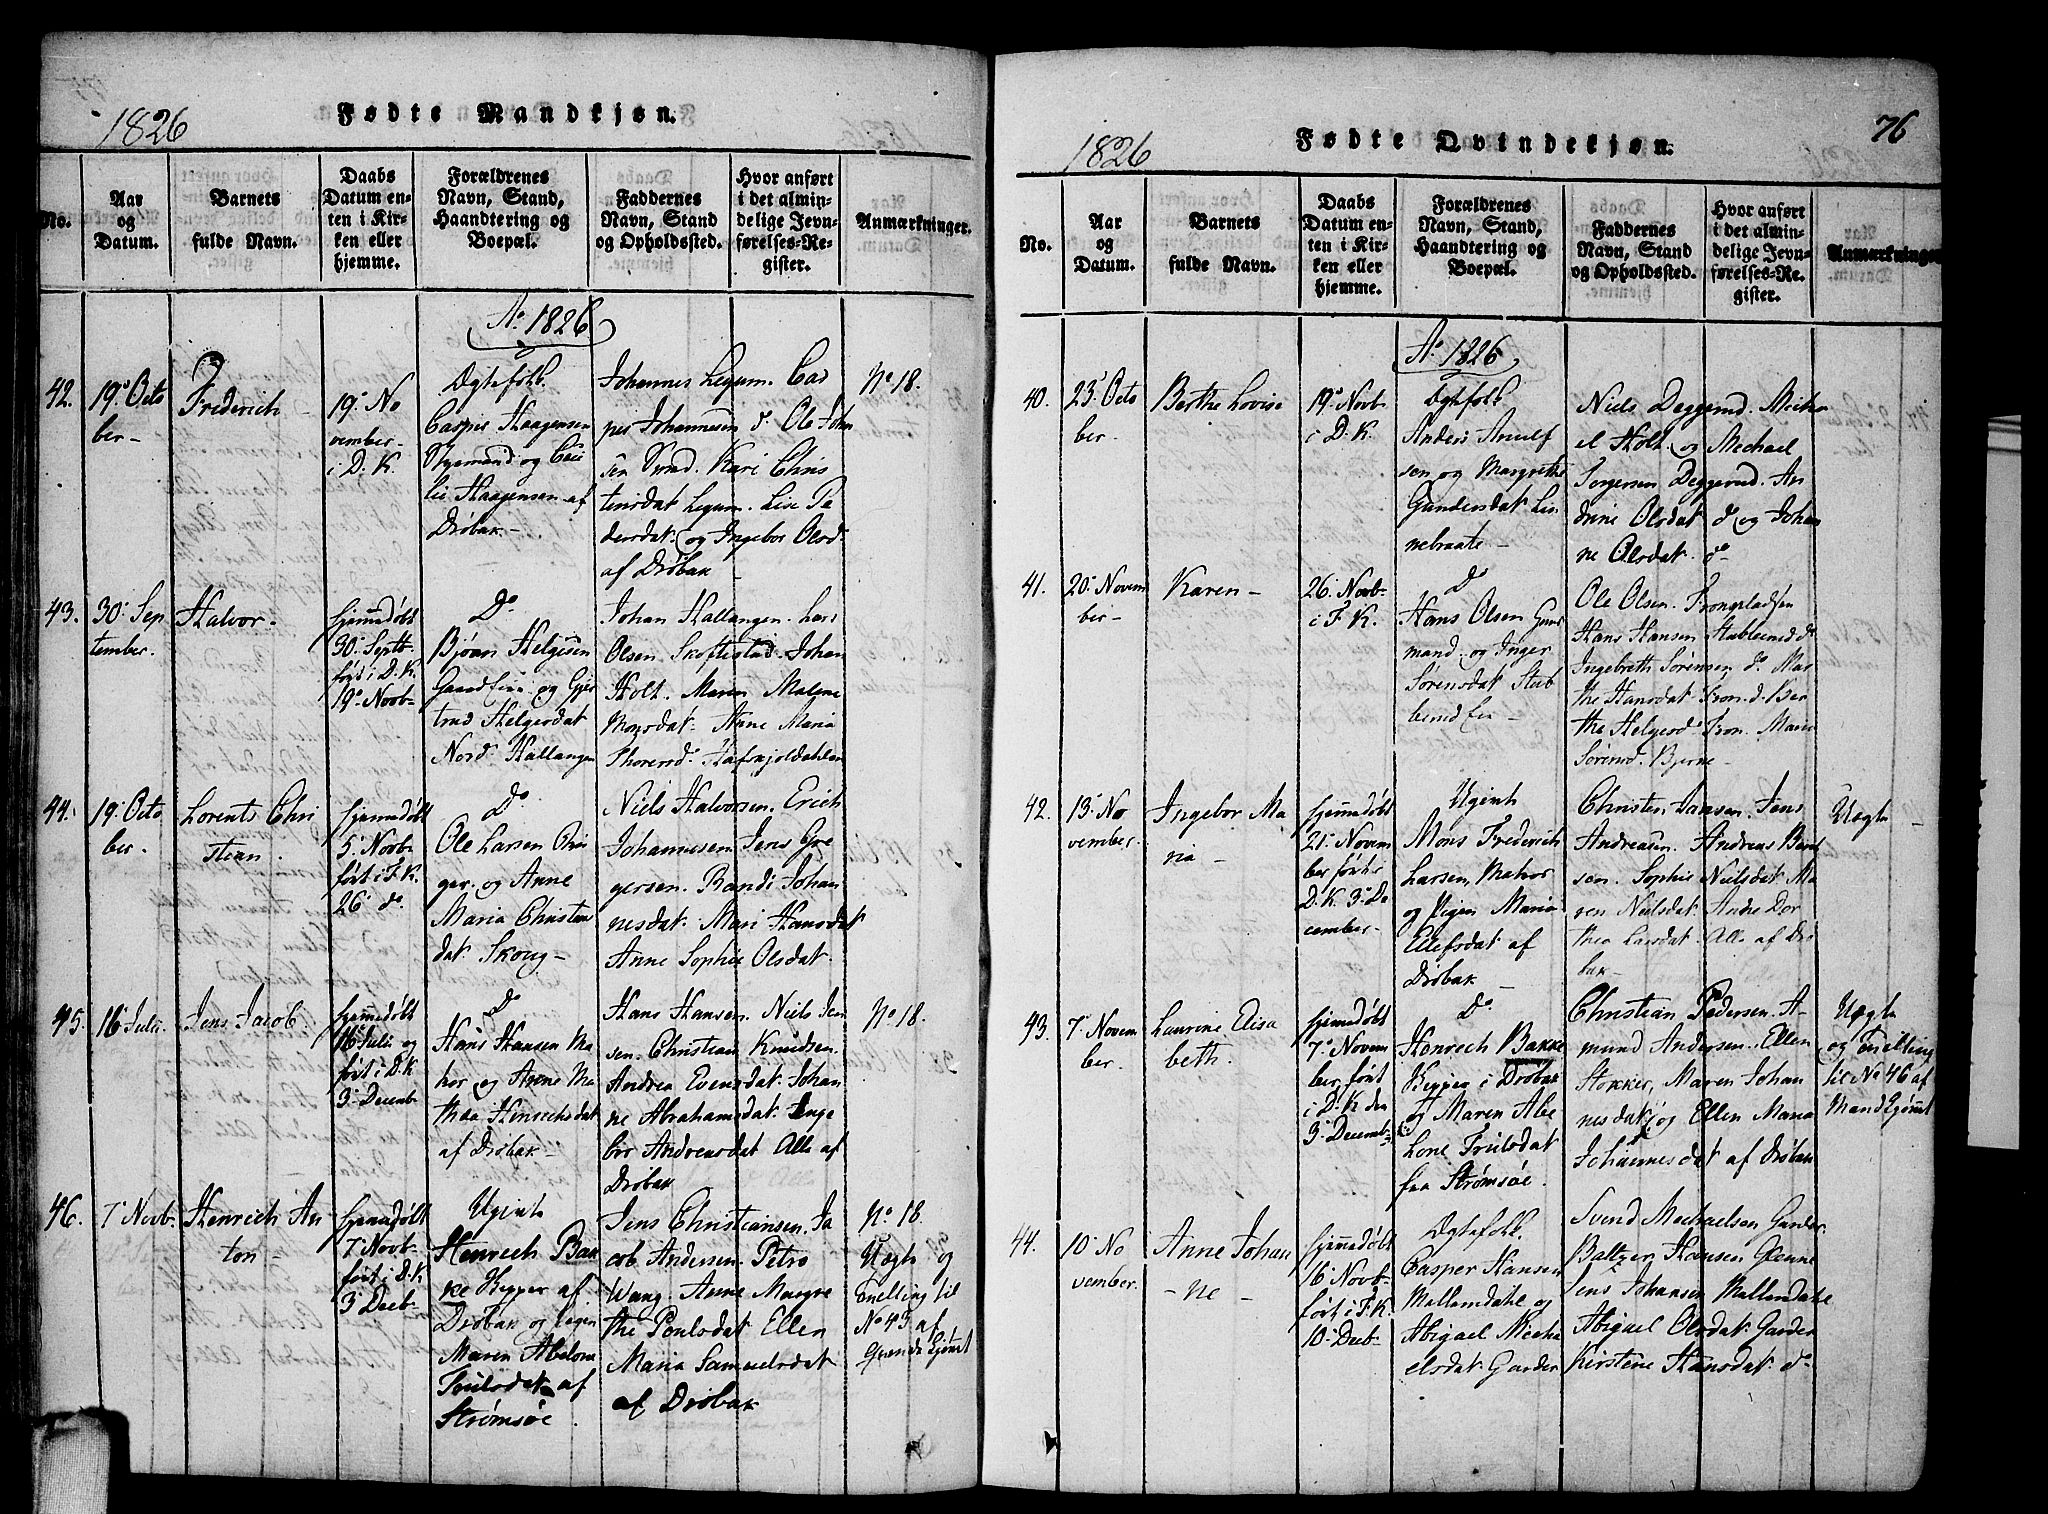 1826
Fødte Mandkjøn.
No.
Aar
og
Datum.
Barnets
fulde Navn.
Daabs
Datum en-
ten i Kir-
ken eller
hjemme.
Forældrenes
Navn, Stand,
Haandtering og
Boepæl.
Faddernes
Navn, Stand
og Opholdssted.
Hvor anført
i det almin-
delige Jevn-
førelses-Re-
gister.
Anmærkninger.
Ao 1826
42.
19de Octo
ber -
Friderich
19de No
vember -
i D. K.
Ægtefolk
Casper Haagensen
og
lie Haagensen af
Drøbak -
Johannes Legum. Cas
per Johannesen do. Ole Johan
sen Kari Chris
tensdat Legum. Lise Pe
dersdat. og Ingebor Olsd.
af Drøbak -
No. 18.
43.
30. Sep
tember.
Halvor -
hjemmedøbt
30. Septb.
ført i D. K.
19de Novb.
Do
Bjørn Helgesen
og Gjer
trud Helgesdat
Nord. Hallangen
Johan Hallangen. Lars
Olsen. Skoftestad. Johan
Holt. Maren Malene
Monsdat. Anne Maria
Thoresd.
44.
19. Octo
ber.
Lorents Chri
stian.
hjemmedøbt
5. Novb.
ført i F. K.
26. do.
Do
Ole Larsen
ger. og Anne
Maria Christen
dat. Skoug -
Niels Halvorsen. Erich
Johannesen Jens Gre
gersen. Randi Johan
nesdat. Mari Hansdat
Anne Sophie Olsdat.
45.
16 Juli.
Jens Jacob.
hjemmedøbt
16 Juli og
ført i D. K
3. Decemb.
Do
Hans Hansen Ma
hor og Anne Ma
thea Henrichsdat
af Drøbak -
Hans Hansen. Niels Jen
sen. Christian Knudsen.
Andrea Evensdat. Johan
ne Abrahamsdat. Inge
bor Andreasdat Alle af
Drøbak
No. 18.
46.
7. Novb.
Henrich An
ton -
hjemmedøbt
7 Novb.
ført i D. K
3 Decb.
Ugivte
Henrich Bak
ke Kipper af
Drøbak og Pigen
Maren Abelone
Truelsdat. af
Strømsøe.
Jens Christiansen. Ja
cob Andersen. Petro
Wang. Anne Margre
the Poulsdat Ellen
Maria Samuelsdat
af Drøbak
No. 18.
Uægte og
Tvilling til
No 43 af
Qvindekjønnet
76
1826
Fødte Qvindekjøn.
No.
Aar
og
Datum.
Barnets
fulde Navn.
Daabs
Datum en-
ten i Kir-
ken eller
hjemme.
Forældrenes
Navn, Stand,
Haandtering og
Boepæl.
Faddernes
Navn, Stand
og Opholdssted.
Hvor anført
i det almin-
delige Jevn-
førelses-Re-
gister.
Anmærkninger
Ao 1826
40.
23. Octo
ber -
Berthe Lovise
19. Novb.
i D. K.
Ægtefolk
Anders Arnulf
sen og Margrethe
Gundersdat Lin
nebraate -
Niels Deggerud. Micha
el Holt. og Michael
Torgersen Deggerud. An
drine Olsdat do og Johan
ne Olsdat. do
41.
20. Novem
ber -
Karen -
26. Novb.
i F. K.
Do
Hans Olsen
mand. og Inger
Sørensdat
Ole Olsen.
Hans Hansen do
Ingebreth Sørensen do. Mar
the Hansdat Ber
the Helgesd. Maria
Sørensd. Bjerne -
42.
13. No
vember.
Ingebor Ma
ria -
hjemmedøbt
21. Novem
ber ført i
D. K. 3. De
cember.
Ugivte
Mons Frederich
Larsen, Matros
og Pigen Maria
Elefsdat af
Drøbak
Christen Jansen. Jens
Andreasen. Andreas Bent
sen. Sophie Nielsdat. Ma
ren Nielsdat. Andre Dor
thea Larsdat. Alle af Drø
bak
Uægte
43.
7. Novem
ber.
Laurine Elisa
beth.
hjemmedøbt
7. Novem
ber ført
i D. K den
3. Decemb.
Do.
Henrich Bakke
Kipper i Drøbak
og Maren Abe
lone Truelsdat
fra Strømsøe.
Christian Pedersen. A
mund Andersen. Ellen
Stokker, Maren Johan
nesdat og Ellen Maria
Johannesdat af Drøbak
Uægte
og Tvilling
til No 46 af
Mandkjønnet
44.
10. No
vember.
Anne Johan
- ne -
hjemmedøbt
16 Novb.
ført i F. K.
10. Decb.
Ægtefolk.
Casper Hansen
Mallemdahle og
Abigael Micha
elsdat. Garder
Svend Michaelsen Garder.
Baltzer Hansen Glenne
Jens Johansen Mallemdahle
Abigael Olsdat. Garder
Kirstine Hansdat. do